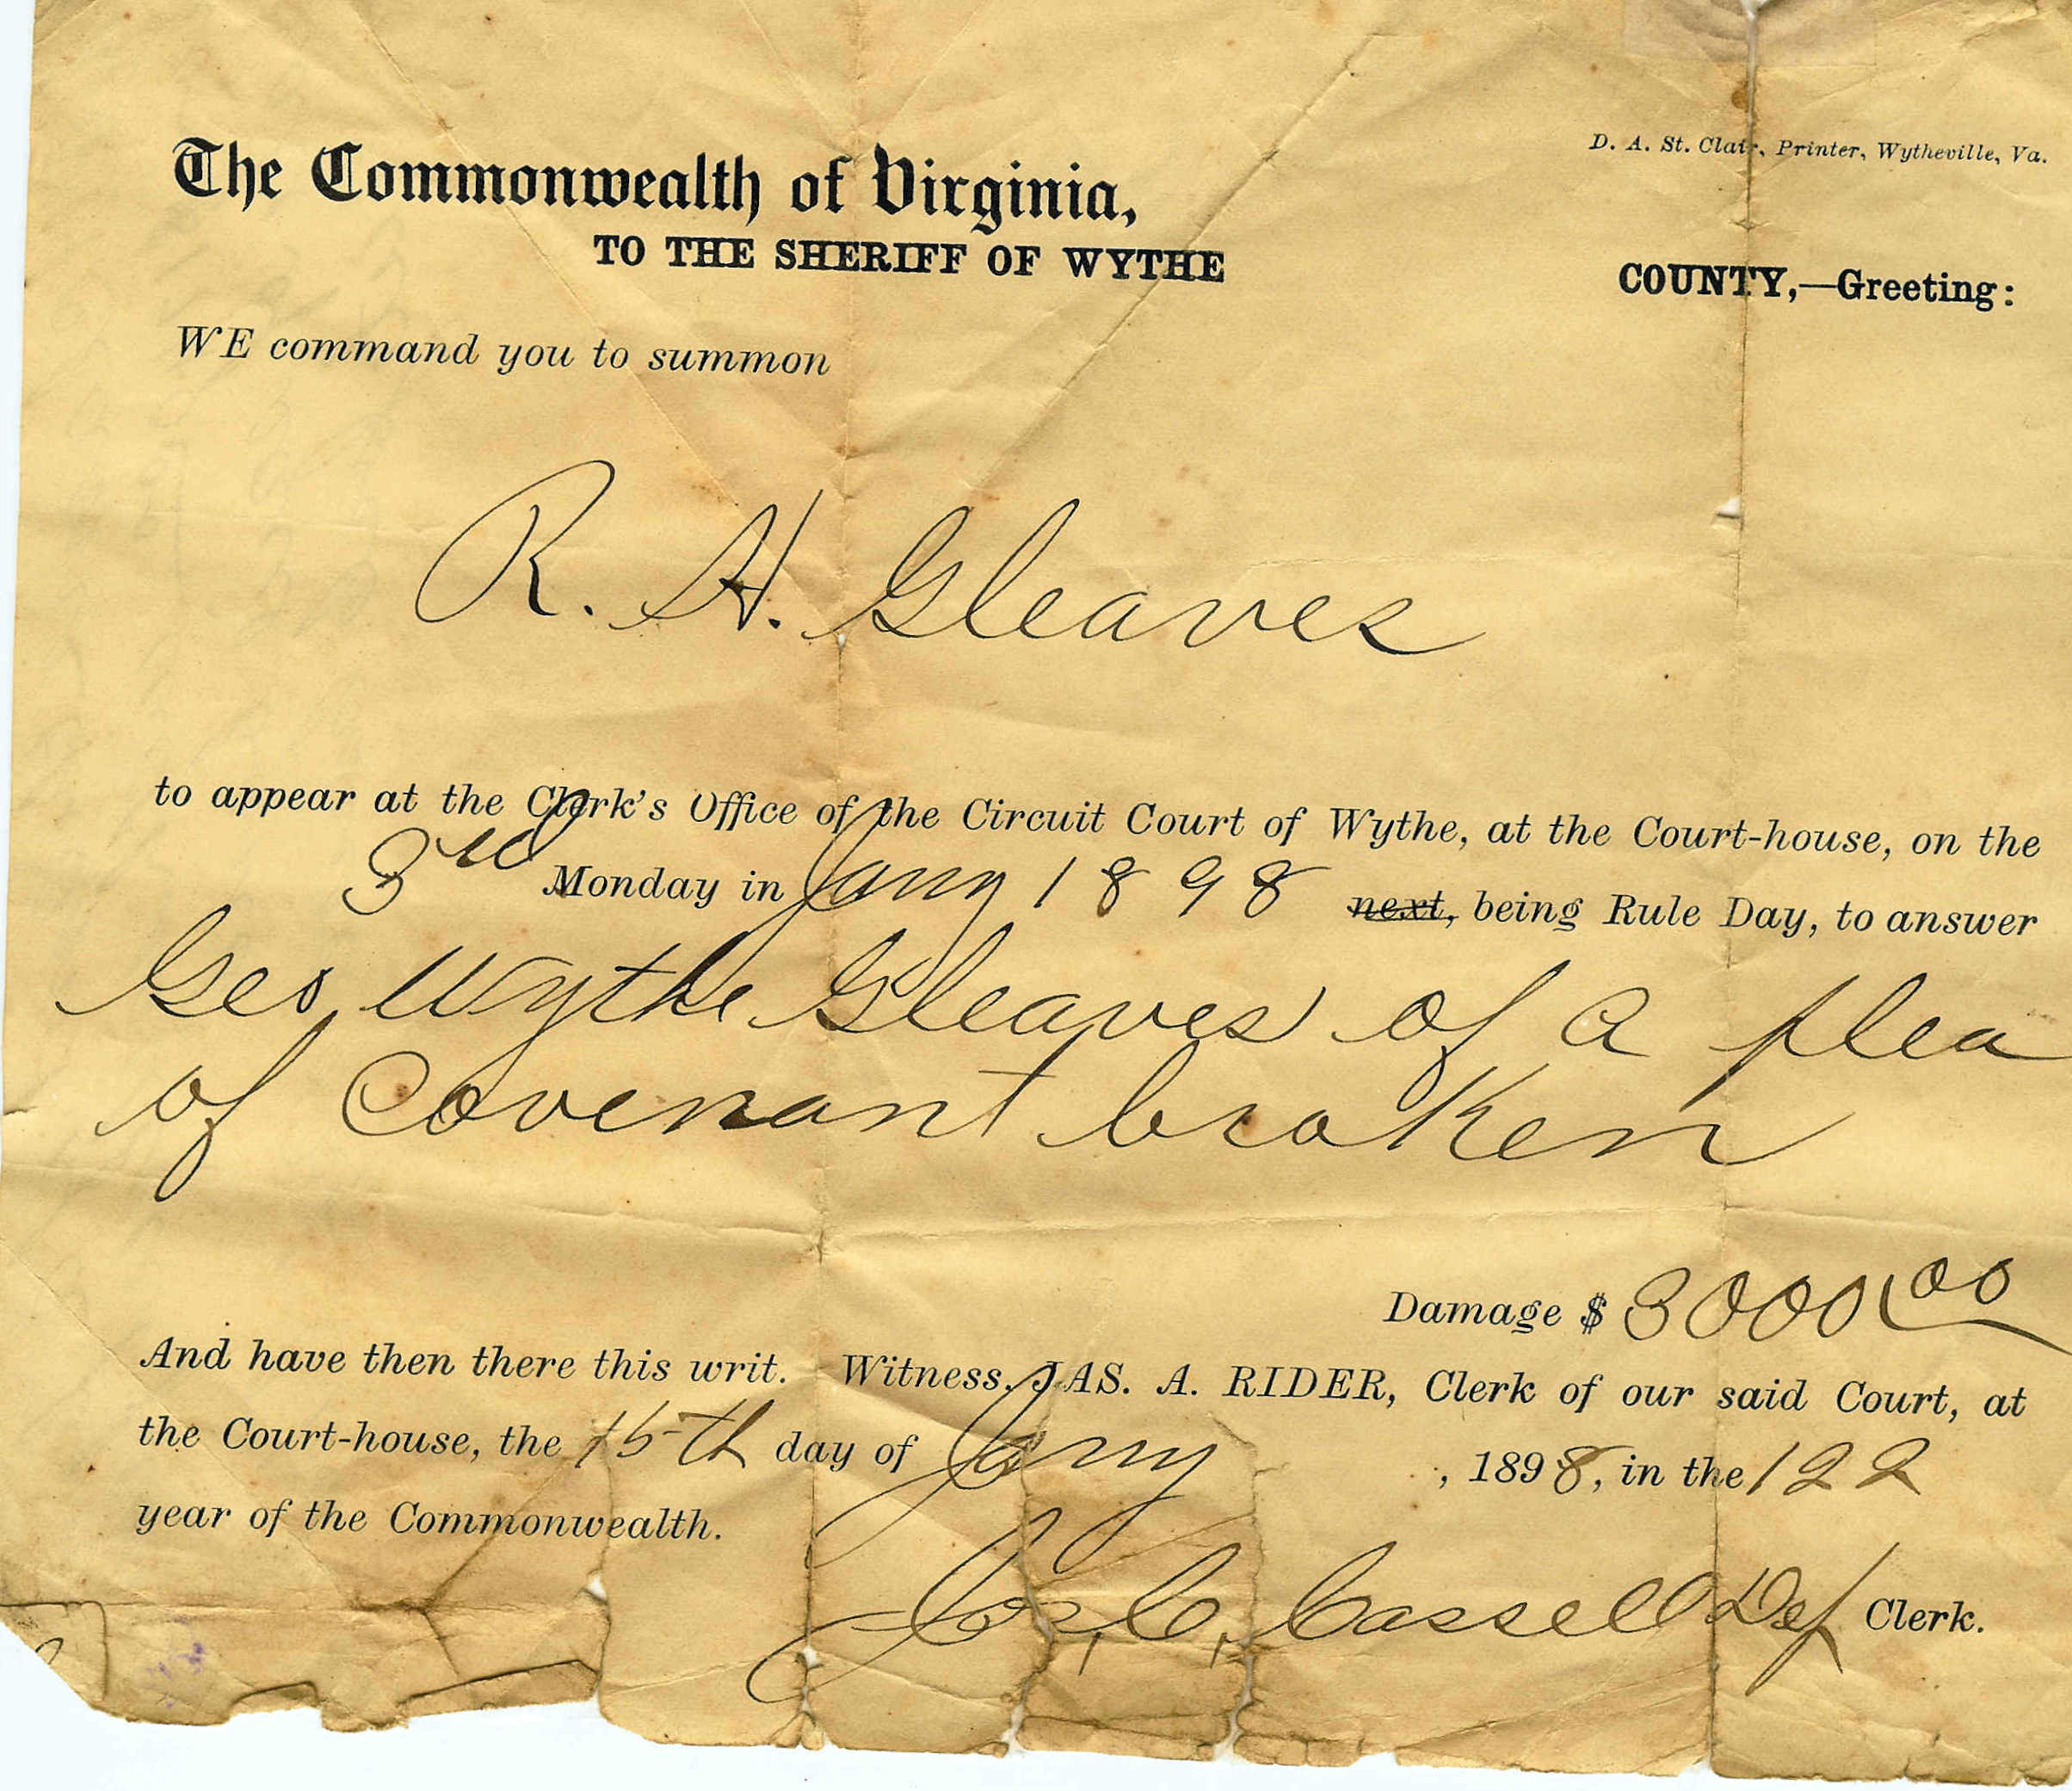 D. A. St. Clair, Printer, Wytheville, Va.
The Commonwealth of Virginia,
TO THE SHERIFF OF WYTHE COUNTY,—Greeting:
WE command you to summon
R. H. Gleaves
to appear at the Clerk's Office of the Circuit Court of Wythe, at the Court-house, on the
3rd Monday in Jany 1898 next, being Rule Day, to answer
Geo Wythe Gleaves of a plea
of Covenant broken
Damage $ 3000 00
And have then there this writ. Witness, JAS. A. RIDER, Clerk of our said Court, at
the Court-house, the 15th day of Jany , 1898, in the 122
year of the Commonwealth.
Jos, C, Cassell Dep Clerk.